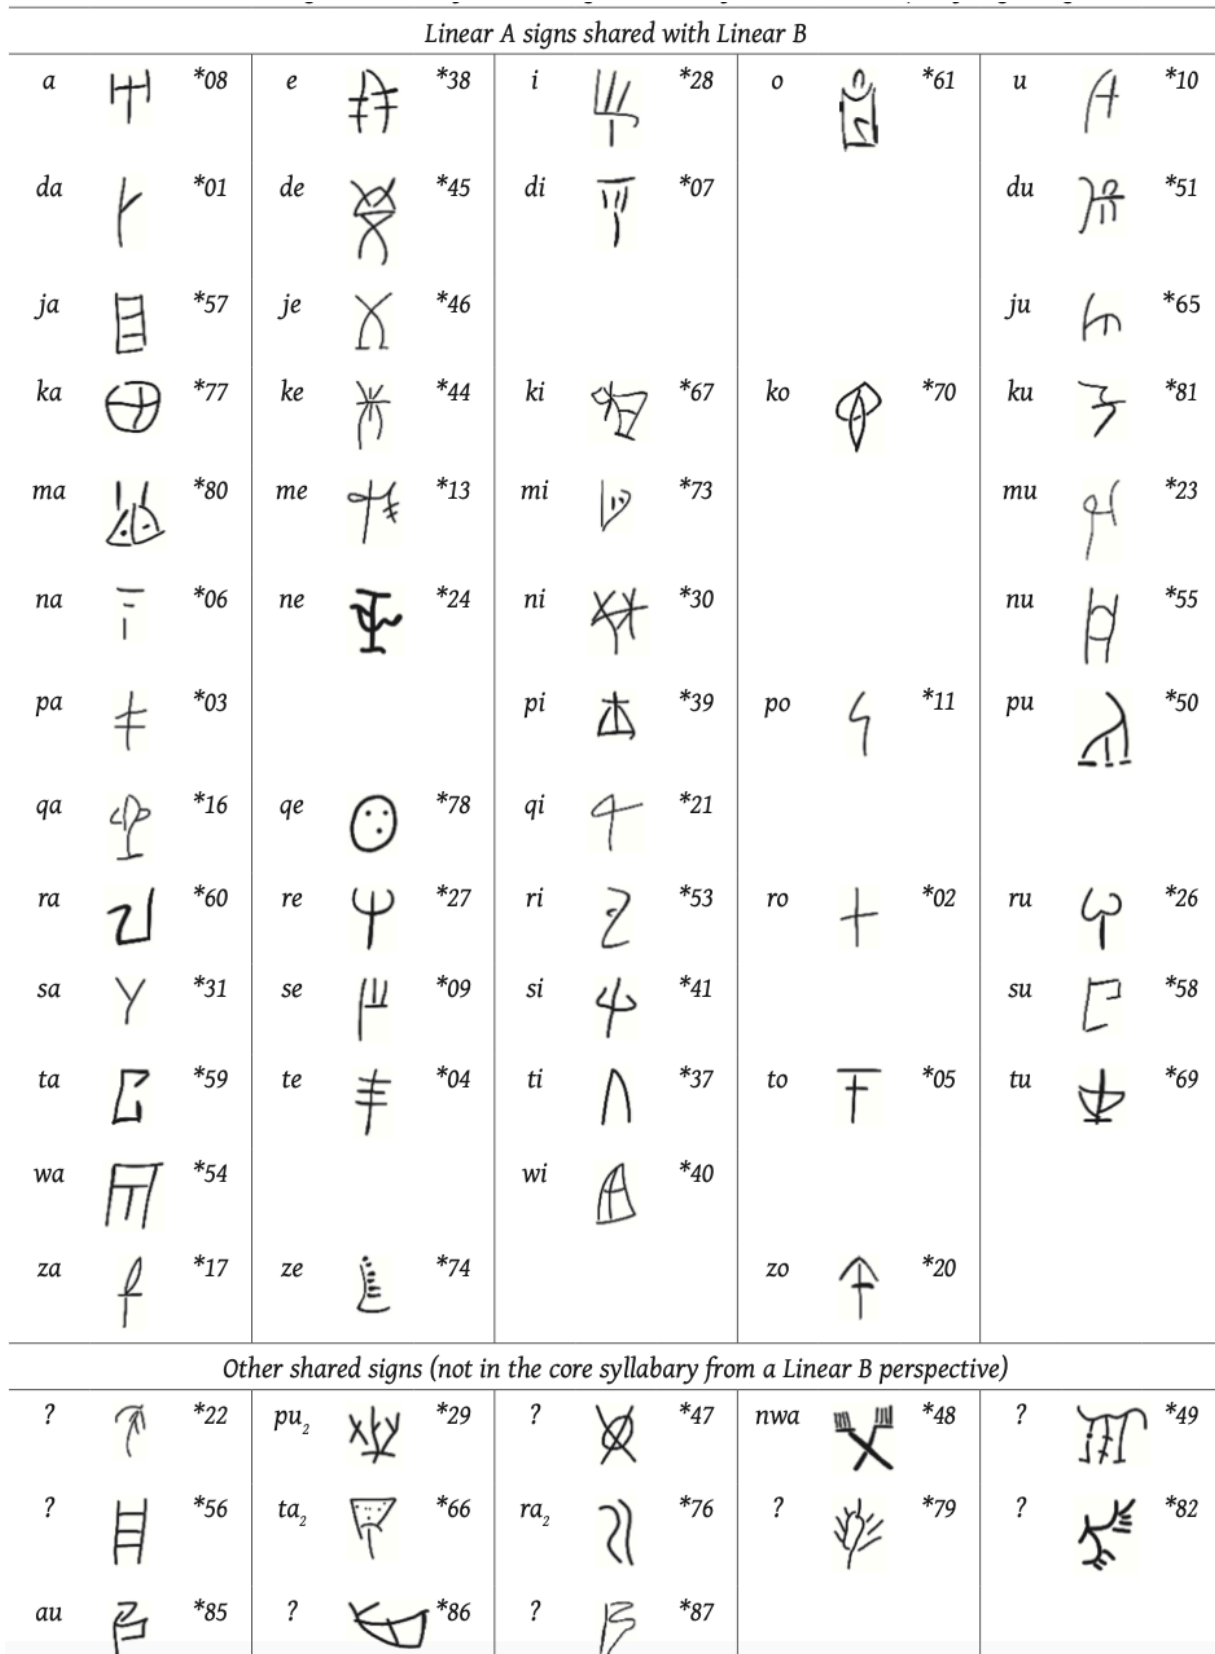 Linear A signs shared with Linear B
a *08 e *38 i *28 o *61 u *10
da *01 de *45 di *07 du *51
ja *57 je *46 ju *65
ka *77 ke *44 ki *67 ko *70 ku *81
ma *80 me *13 mi *73 mu *23
na *06 ne *24 ni *30 nu *55
pa *03 pi *39 po *11 pu *50
qa *16 qe *78 qi *21
ra *60 re *27 ri *53 ro *02 ru *26
sa *31 se *09 si *41 su *58
ta *59 te *04 ti *37 to *05 tu *69
wa *54 wi *40
za *17 ze *74 zo *20
Other shared signs (not in the core syllabary from a Linear B perspective)
? *22 pu₂ *29 ? *47 nwa *48 ? *49
? *56 ta₂ *66 ra₂ *76 ? *79 ? *82
au *85 ? *86 ? *87